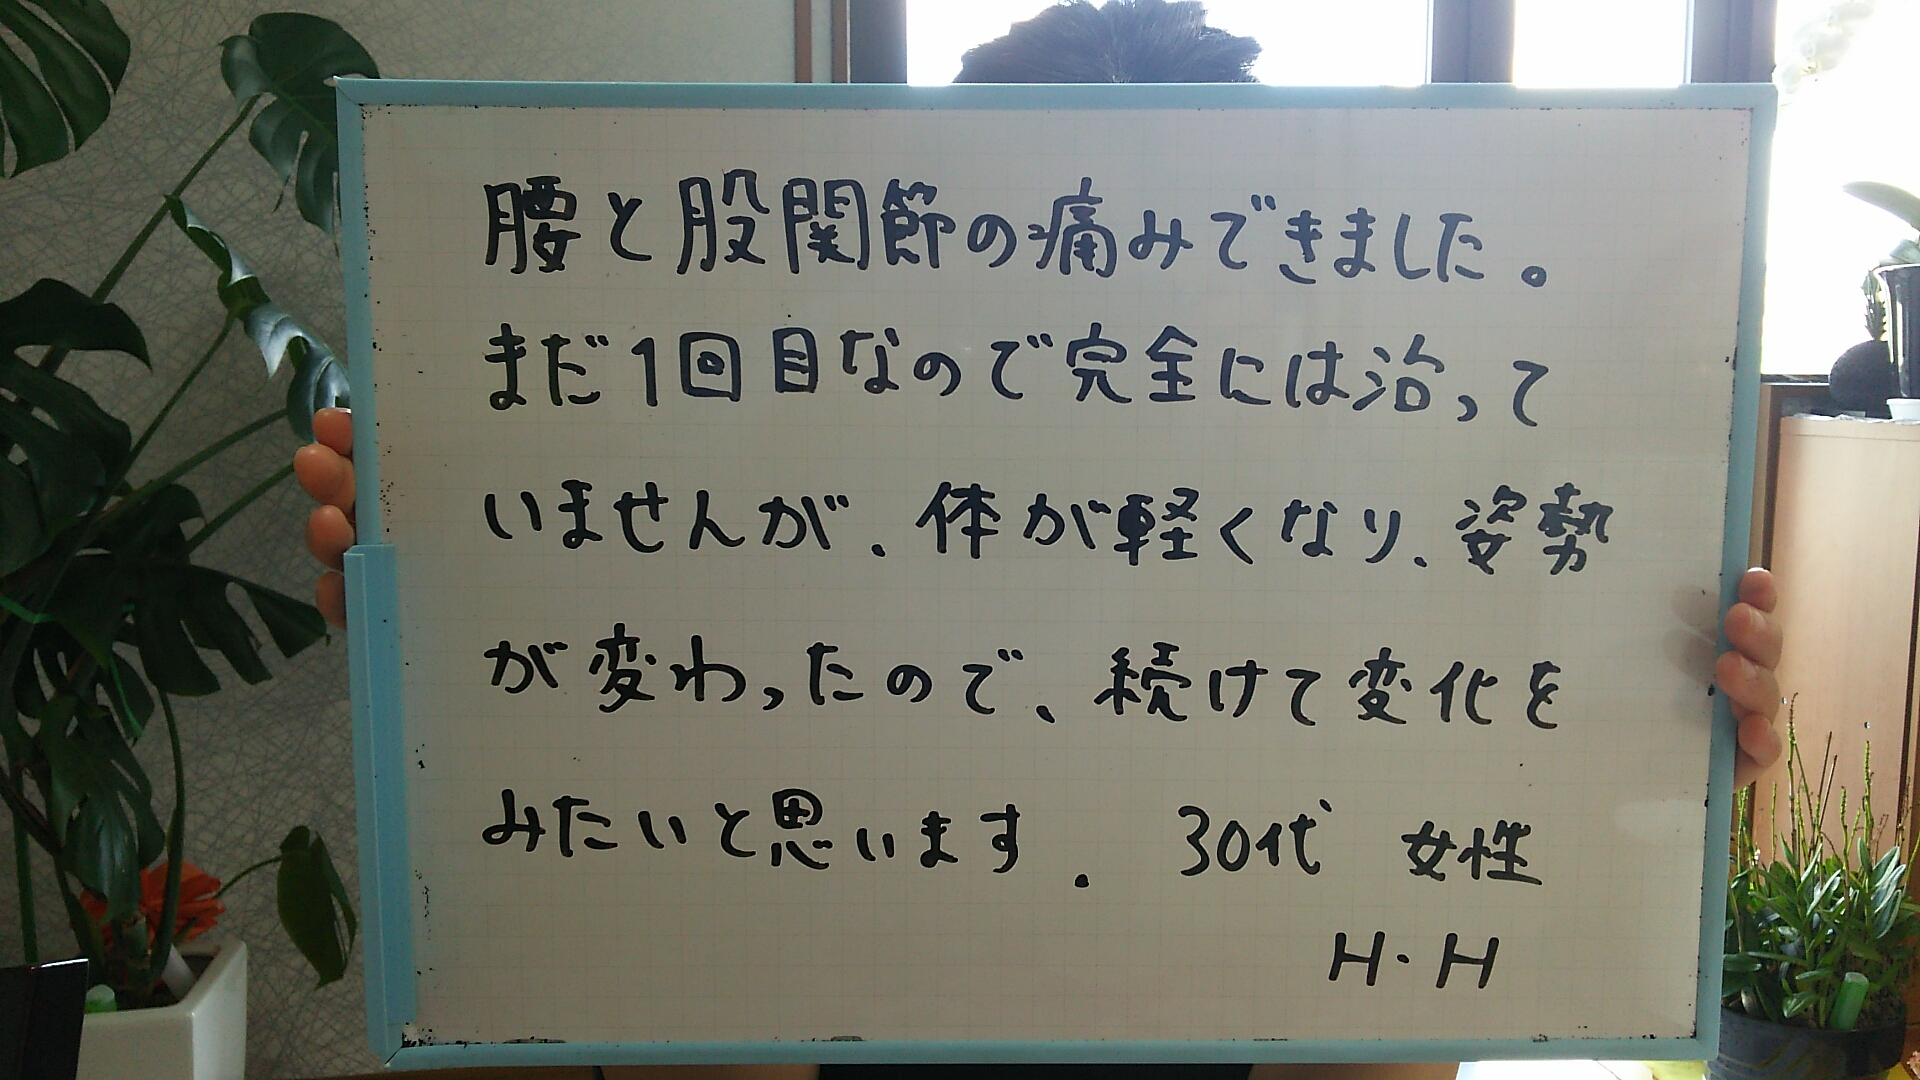 腰と股関節の痛みできました。
まだ1回目なので完全には治って
いませんが、体が軽くなり、姿勢
が変わったので、続けて変化を
みたいと思います. 30代 女性
H・H